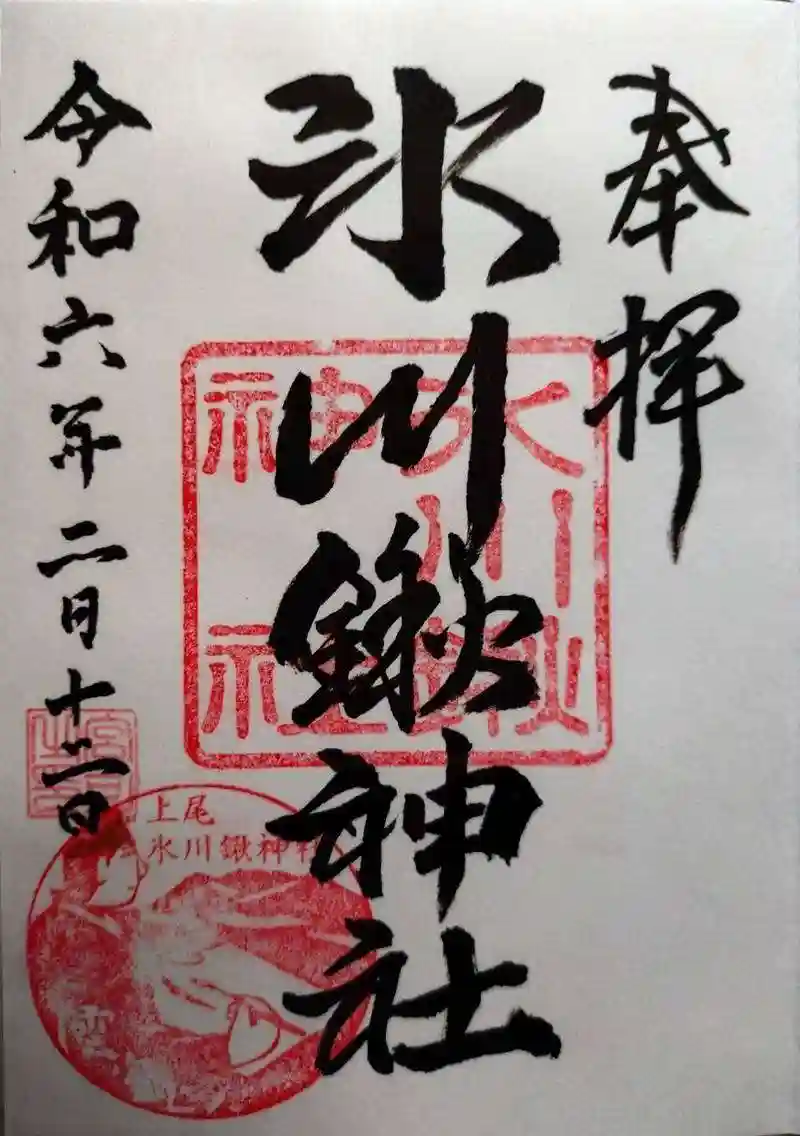 奉拝
氷川鍬神社
令和六年二月十二日
氷川鍬
神社
上尾
氷川鍬神社